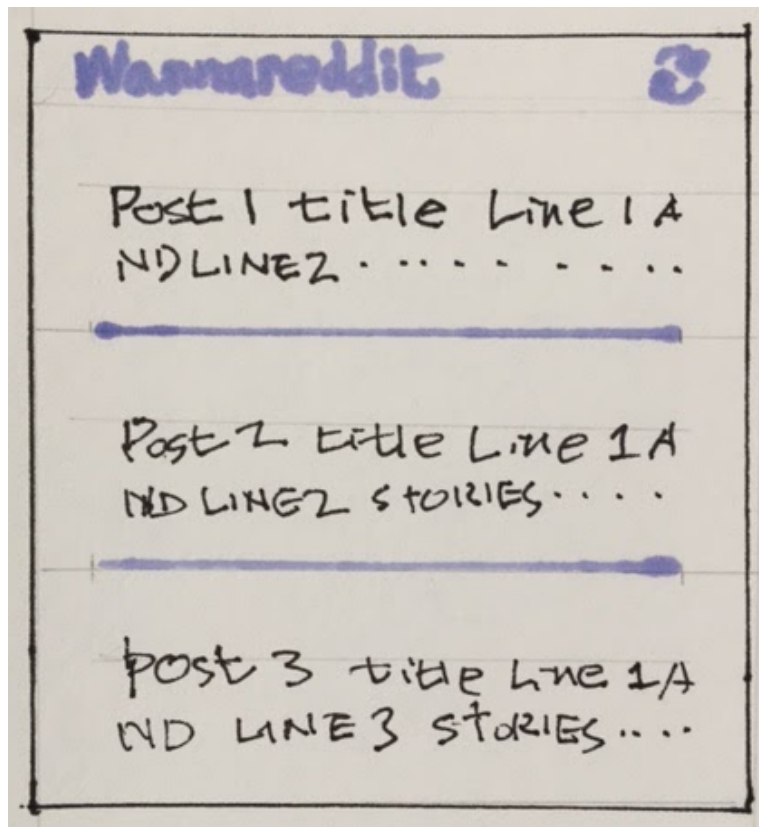 Wannareddit
Post 1 title Line 1 A
ND LINE2 . . . . . . . . . .
Post 2 title Line 1 A
ND LINE2 STORIES . . . .
post 3 title Line 1 A
ND LINE 3 STORIES . . . .